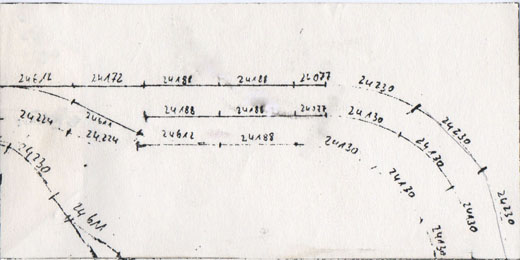 24612 24172 24188 24188 24077
24188 24188 24077
24612 24188
24224
24611
24224
24230
24611
24230
24230
24230
24130
24130
24130
24130
24130
24130